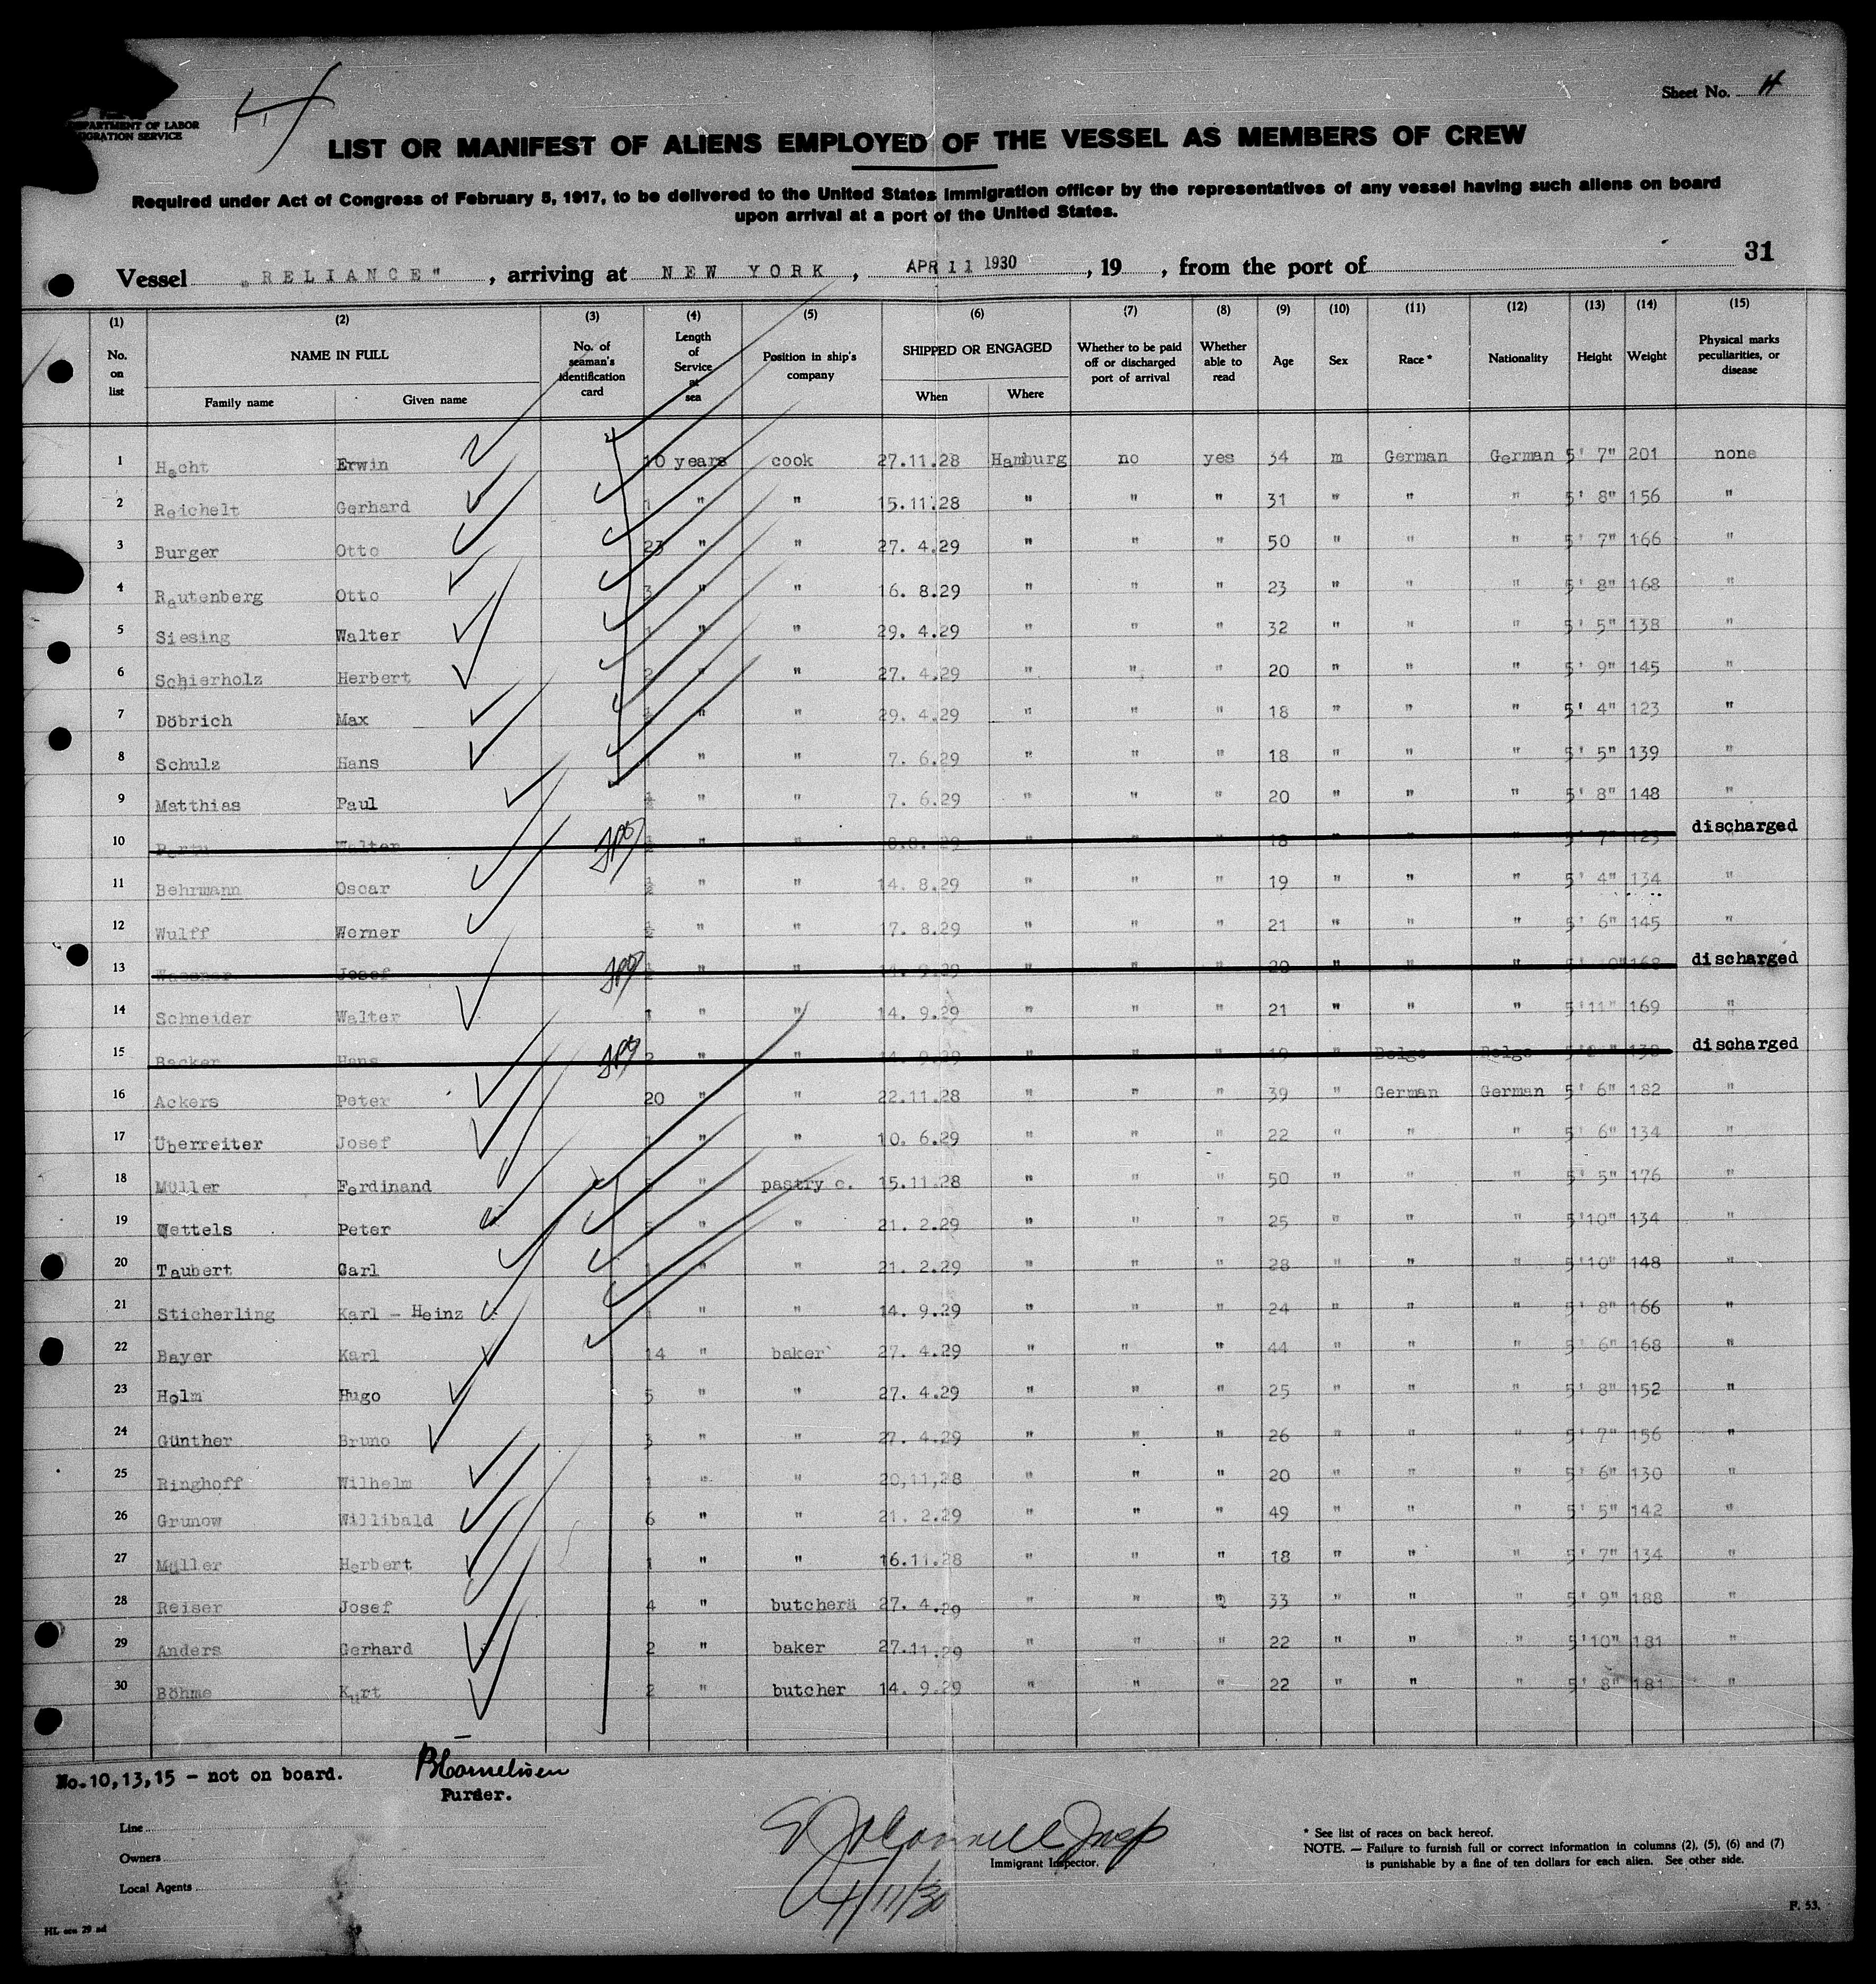 Sheet No. H
PARTMENT OF LABOR
IGRATION SERVICE
LIST OR MANIFEST OF ALIENS EMPLOYED OF THE VESSEL AS MEMBERS OF CREW
Required under Act of Congress of February 5, 1917, to be delivered to the United States immigration officer by the representatives of any vessel having such aliens on board
upon arrival at a port of the United States.
31
Vessel "RELIANCE", arriving at NEW YORK, APR 11 1930, 19 , from the port of
(1) (2) (3) (4) (5) (6) (7) (8) (9) (10) (11) (12) (13) (14) (15)
No. on list NAME IN FULL Family name Given name No. of seaman's identification card Length of Service at sea Position in ship's company SHIPPED OR ENGAGED When Where Whether to be paid off or discharged port of arrival Whether able to read Age Sex Race* Nationality Height Weight Physical marks peculiarities, or disease
1 Hecht Erwin 10 years cook 27.11.28 Hamburg no yes 34 m German German 5' 7" 201 none
2 Reichelt Gerhard 1 " " 15.11.28 " " " 31 " " " 5' 8" 156 "
3 Burger Otto 23 " " 27. 4.29 " " " 50 " " " 5' 7" 166 "
4 Rautenberg Otto 3 " " 16. 8.29 " " " 23 " " " 5' 8" 168 "
5 Siesing Walter 1 " " 29. 4.29 " " " 32 " " " 5' 5" 138 "
6 Schierholz Herbert 2 " " 27. 4.29 " " " 20 " " " 5' 9" 145 "
7 Döbrich Max " " 29. 4.29 " " " 18 " " " 5' 4" 123 "
8 Schulz Hans 1 " " 7. 6.29 " " " 18 " " " 5' 5" 139 "
9 Matthias Paul ½ " " 7. 6.29 " " " 20 " " " 5' 8" 148 "
10 Walter ½ " " 8.8. 29 " " " 18 " " " 5' 7" 123 discharged
11 Behrmann Oscar ½ " " 14. 8.29 " " " 19 " " " 5' 4" 134 "
12 Wulff Werner ½ " " 17. 8.29 " " " 21 " " " 5' 6" 145 "
13 Josef " " 14. 9.29 " " " 20 " " " 168 discharged
14 Schneider Walter 1 " " 14. 9.29 " " " 21 " " " 5'11" 169 "
15 Backer Hans 2 " " 14. 9.29 " " " 19 " Belge Belge discharged
16 Ackers Peter 20 " " 22.11.28 " " " 39 " German German 5' 6" 182 "
17 Überreiter Josef 1 " " 10. 6.29 " " " 22 " " " 5' 6" 134 "
18 Müller Ferdinand " pastry c. 15.11.28 " " " 50 " " " 5' 5" 176 "
19 Wettels Peter " " 21. 2.29 " " " 25 " " " 5'10" 134 "
20 Taubert Carl " " 21. 2.29 " " " 28 " " " 5'10" 148 "
21 Sticherling Karl - Heinz " " 14. 9.29 " " " 24 " " " 5' 8" 166 "
22 Bayer Karl 14 " baker 27. 4.29 " " " 44 " " " 5' 6" 168 "
23 Holm Hugo 5 " " 27. 4.29 " " " 25 " " " 5' 8" 152 "
24 Günther Bruno 3 " " 27. 4.29 " " " 26 " " " 5' 7" 156 "
25 Ringhoff Wilhelm 1 " " 20,11,28 " " " 20 " " " 5' 6" 130 "
26 Grunow Willibald 6 " " 21. 2.29 " " " 49 " " " 5' 5" 142 "
27 Müller Herbert 1 " " 16.11.28 " " " 18 " " " 5' 7" 134 "
28 Reiser Josef 4 " butcherä 27. 4.29 " " " 33 " " " 5' 9" 188 "
29 Anders Gerhard 2 " baker 27.11.29 " " " 22 " " " 5'10" 181 "
30 Böhme Kurt 2 " butcher 14. 9.29 " " " 22 " " " 5' 8" 181 "
No.10,13,15 - not on board.
BCornelisen
Purser.
Line
Owners
Local Agents
Immigrant Inspector.
4/11/30
* See list of races on back hereof.
NOTE. — Failure to furnish full or correct information in columns (2), (5), (6) and (7)
is punishable by a fine of ten dollars for each alien. See other side.
F. 53.